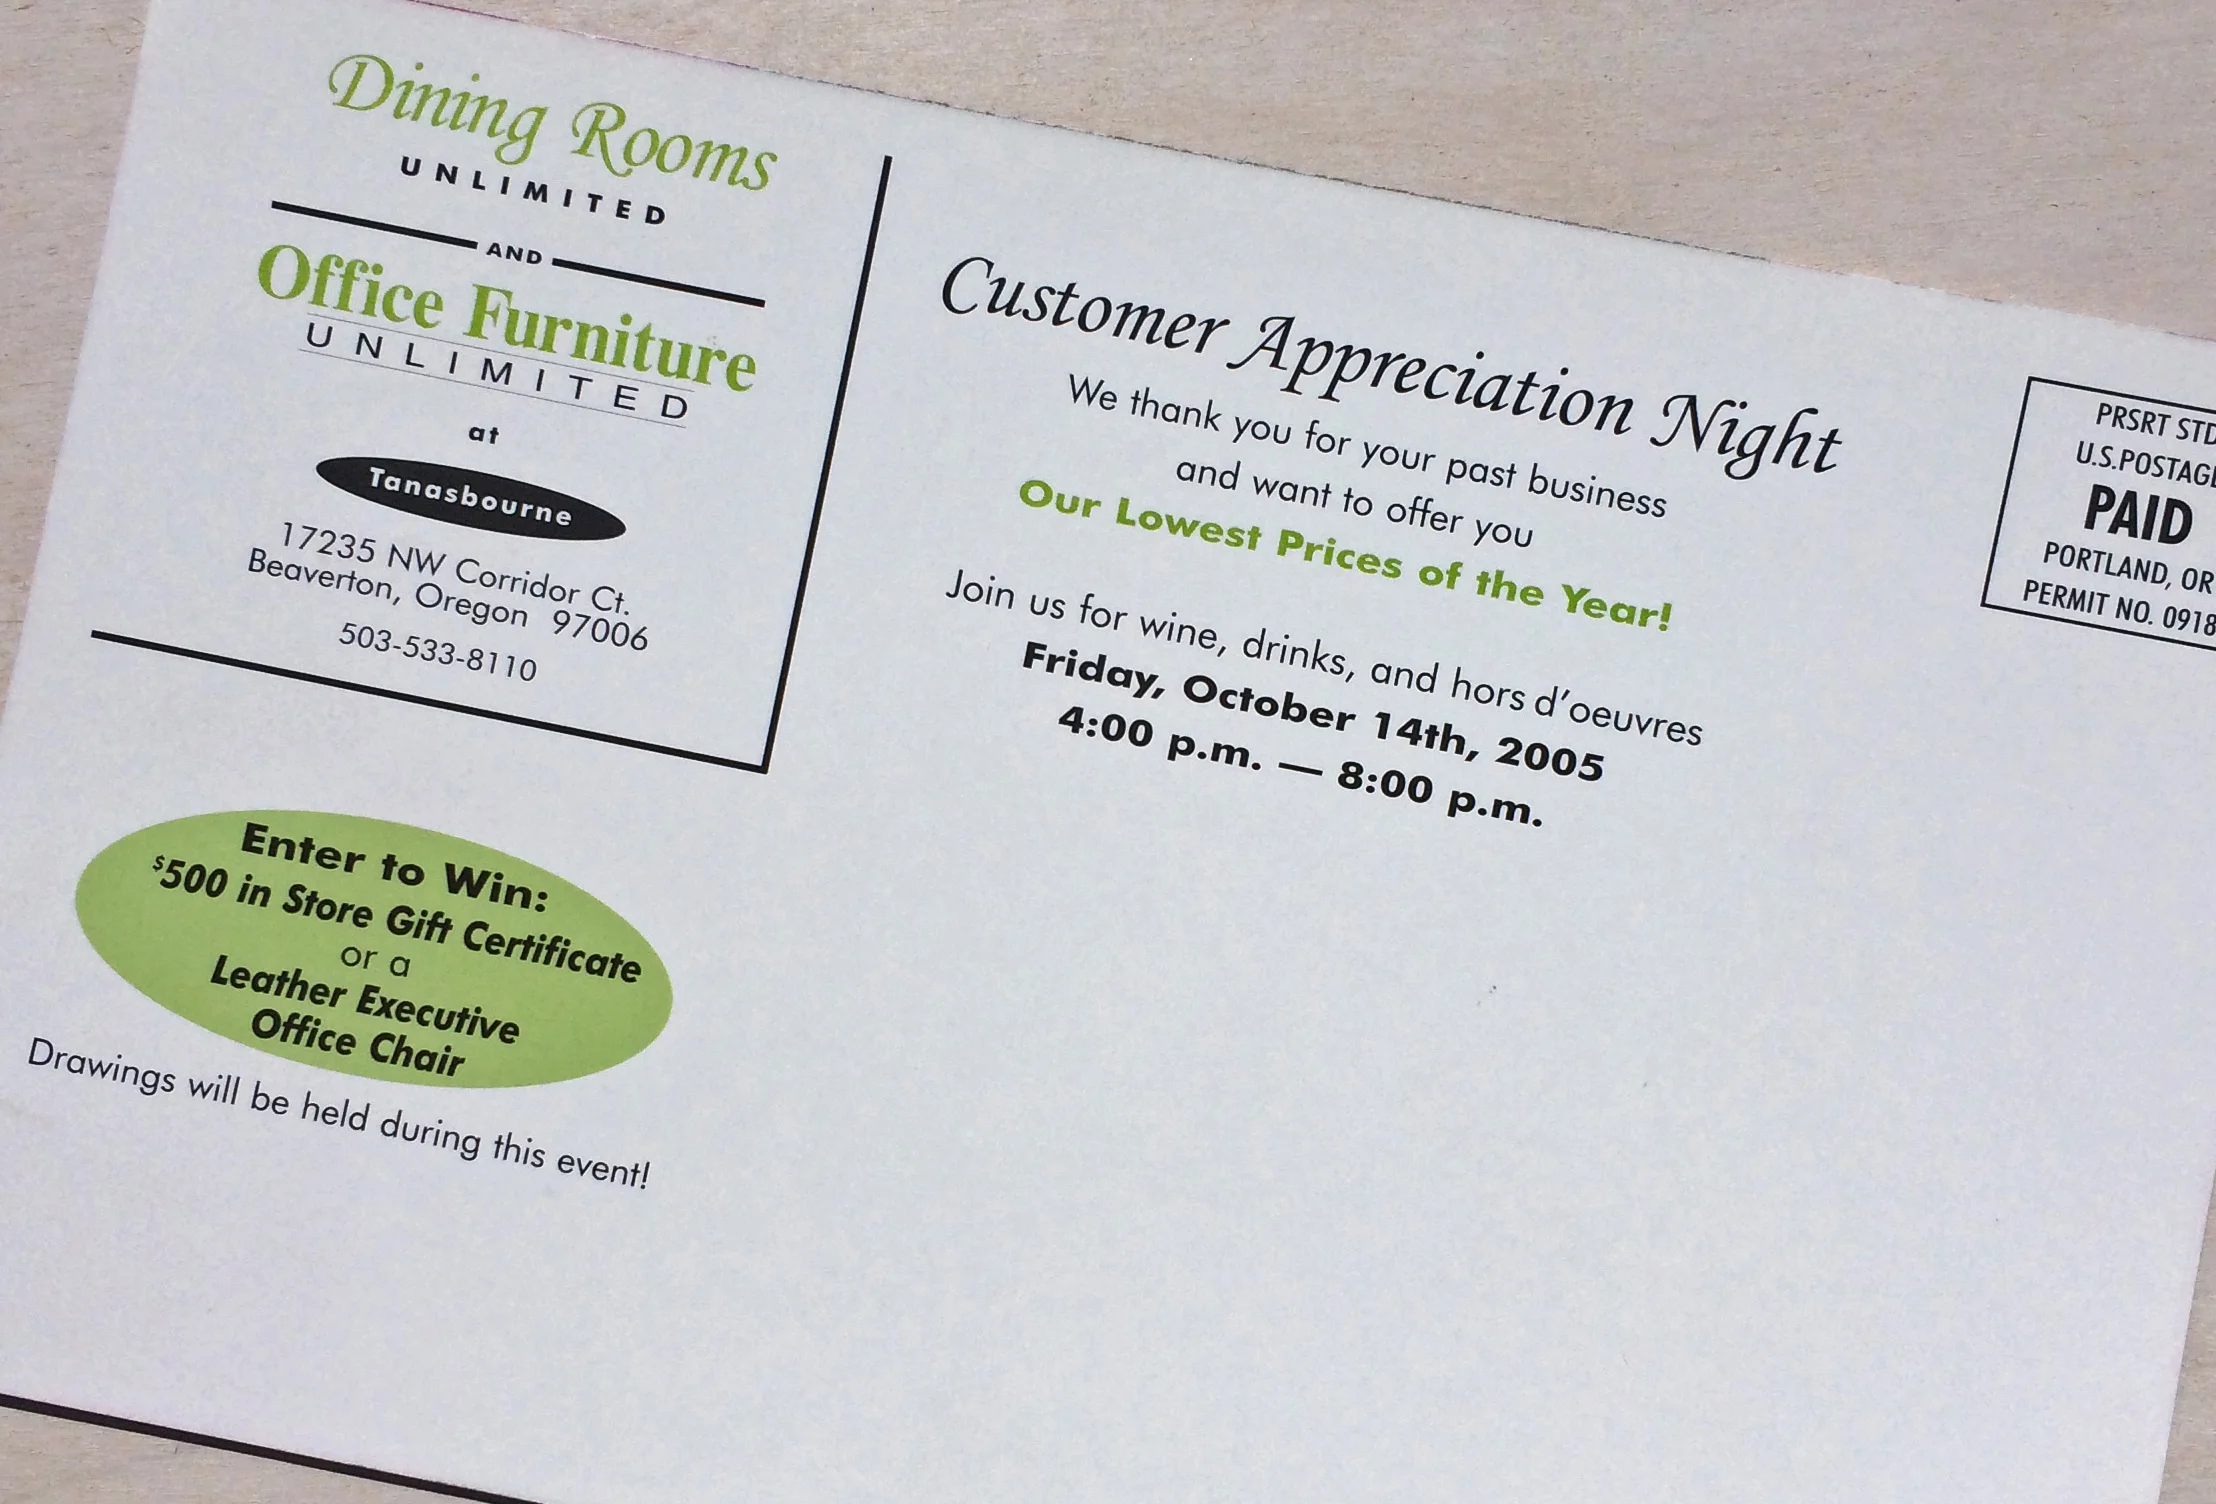 Dining Rooms
UNLIMITED
AND
Office Furniture
UNLIMITED
at
Tanasbourne
17235 NW Corridor Ct.
Beaverton, Oregon 97006
503-533-8110
Enter to Win:
$500 in Store Gift Certificate
or a
Leather Executive
Office Chair
Drawings will be held during this event!
Customer Appreciation Night
We thank you for your past business
and want to offer you
Our Lowest Prices of the Year!
Join us for wine, drinks, and hors d'oeuvres
Friday, October 14th, 2005
4:00 p.m. — 8:00 p.m.
PRSRT STD
U.S.POSTAGE
PAID
PORTLAND, OR
PERMIT NO. 0918